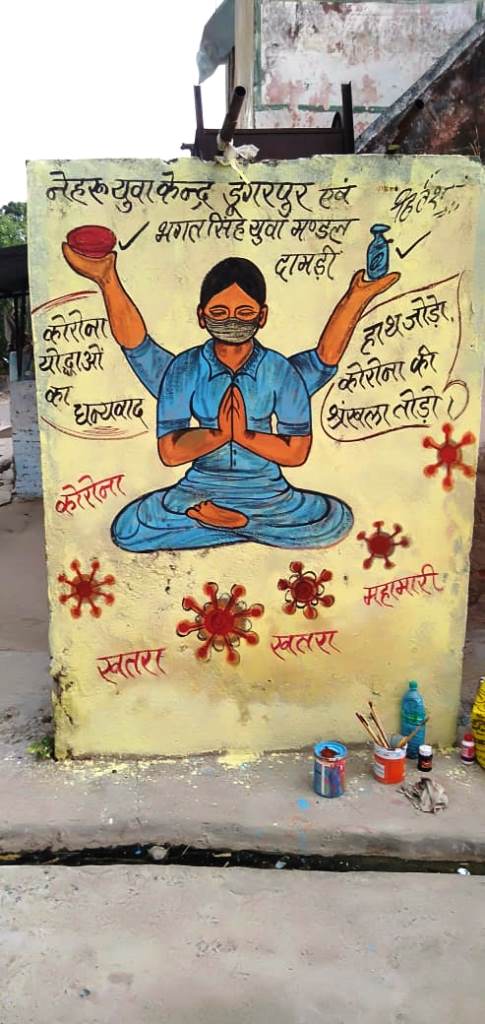 नेहरू युवा केन्द्र डूंगरपुर एवं
भगत सिंह युवा मण्डल
दामड़ी
कोरोना
योद्धाओं
का
धन्यवाद
हाथ जोड़ो,
कोरोना की
श्रंखला तोड़ो।
कोरोना
महामारी
खतरा
खतरा